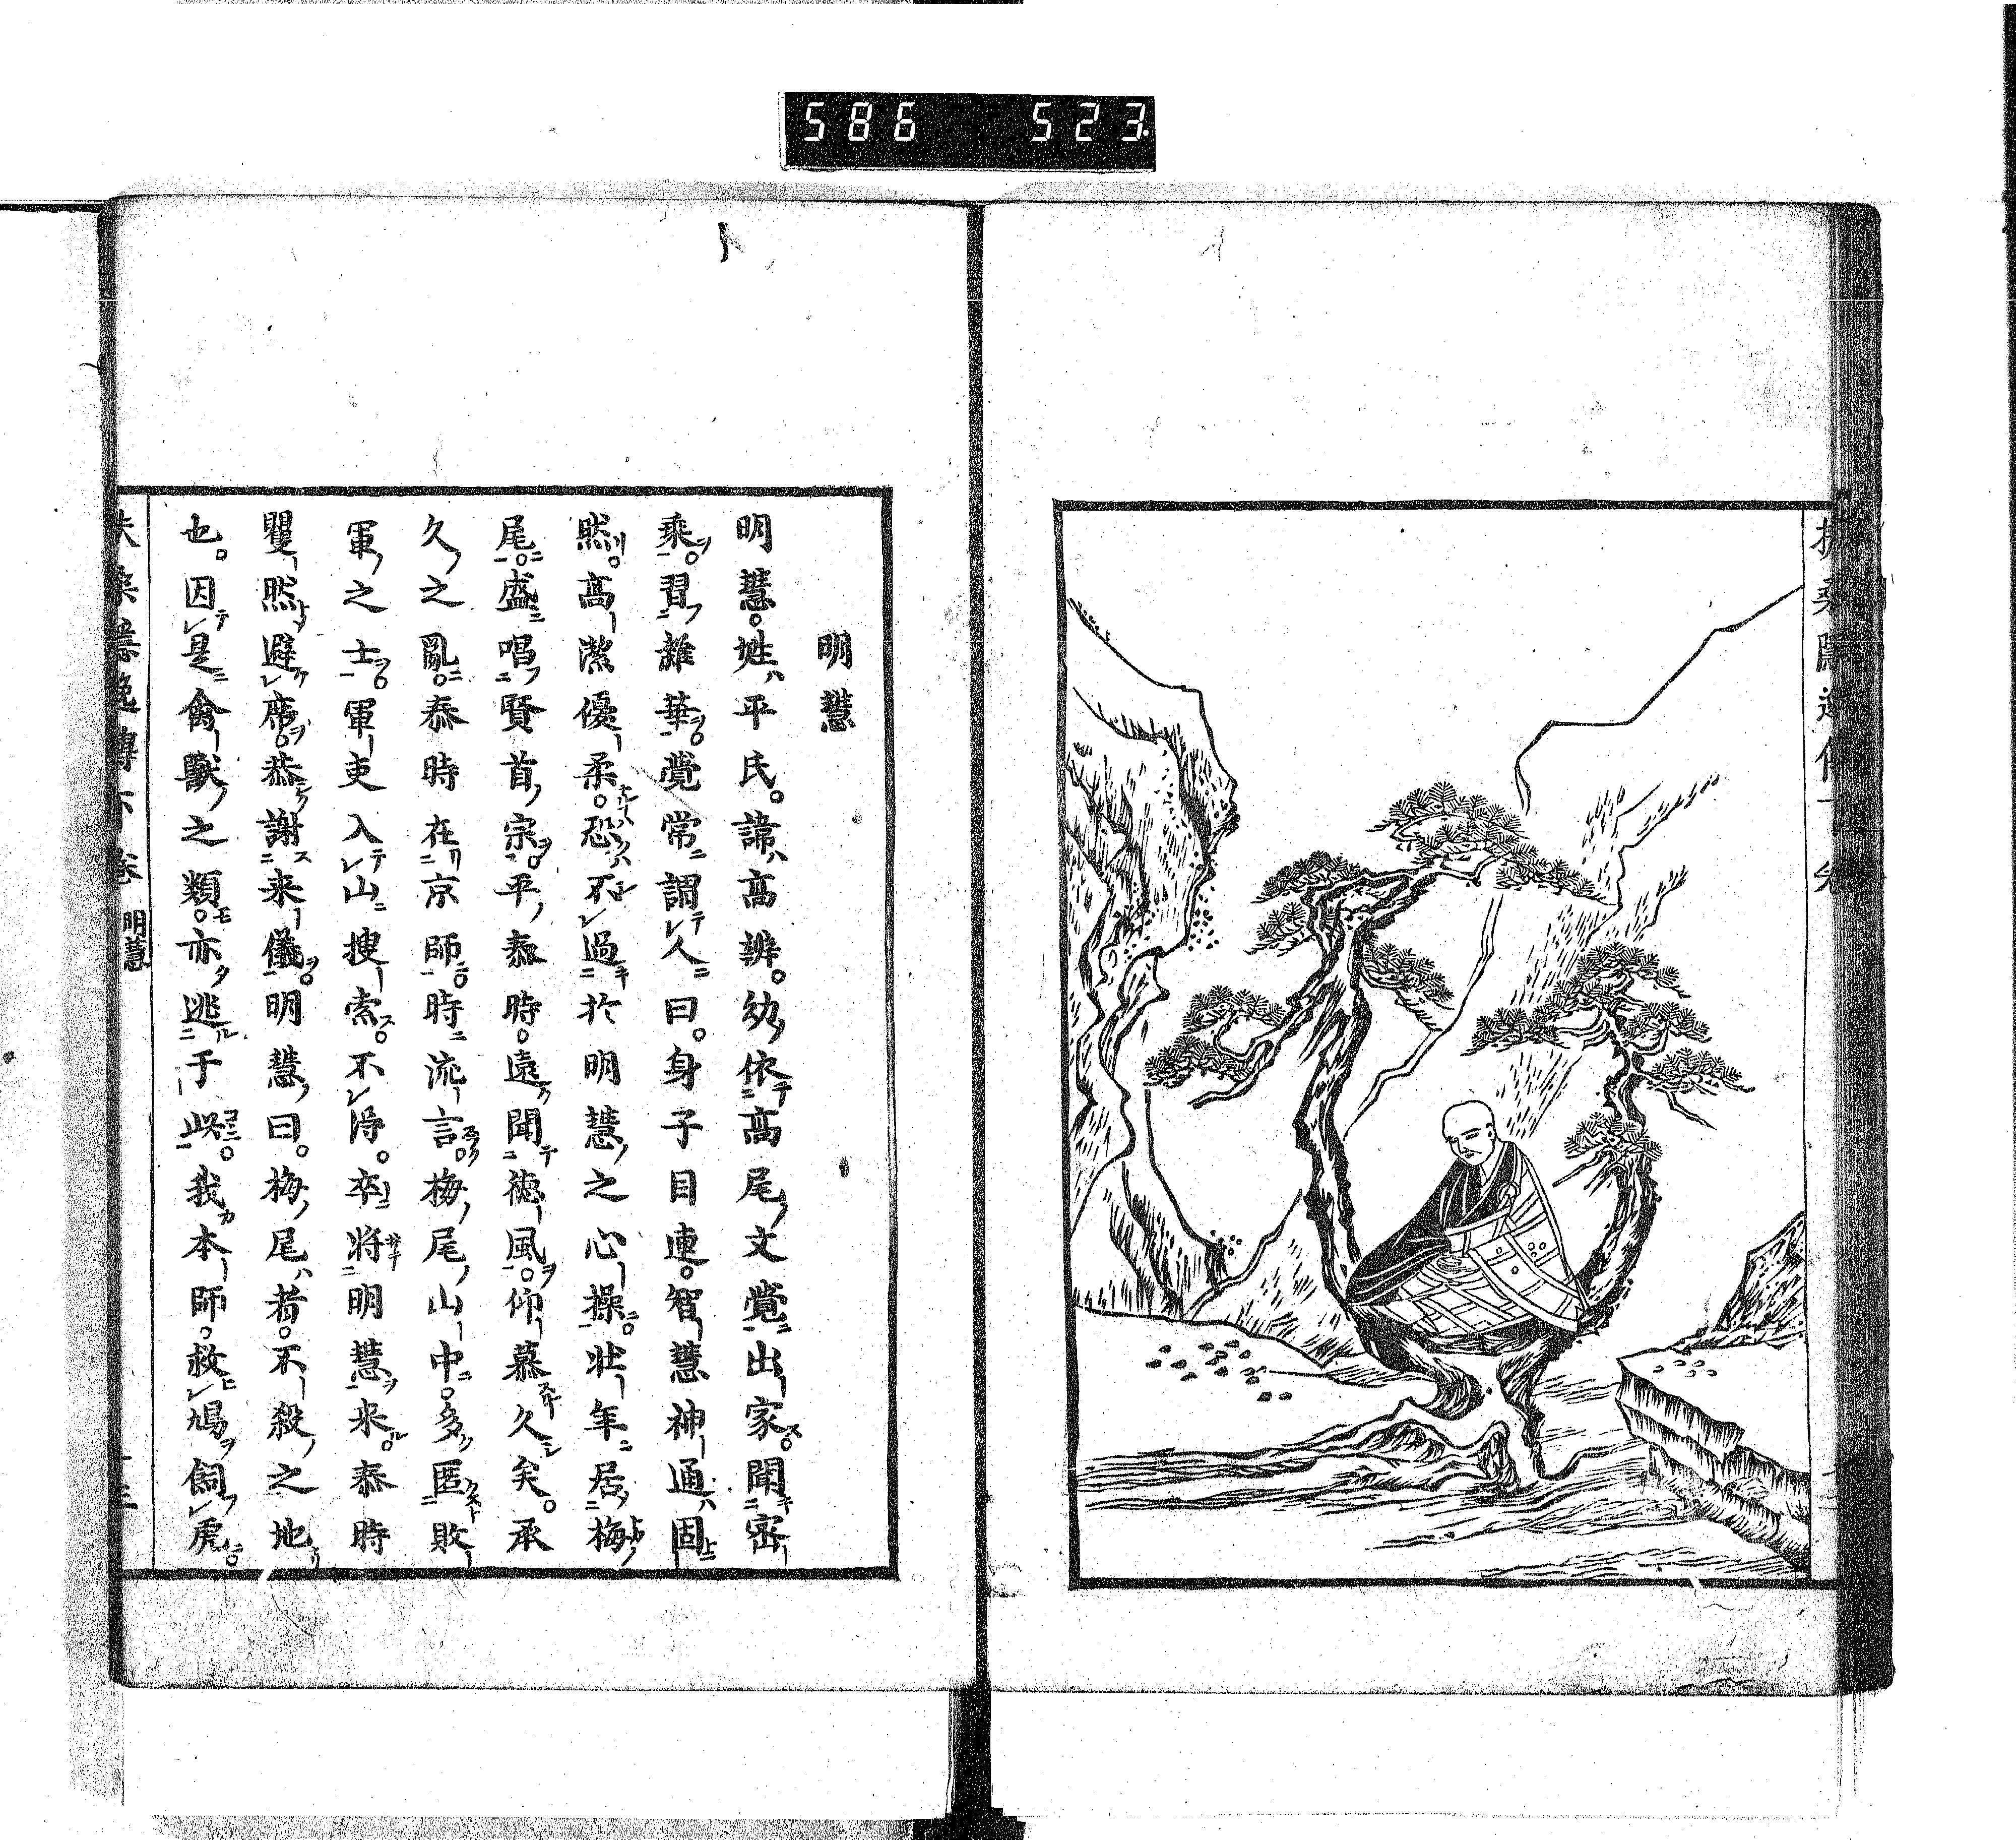 586 523
明慧
明慧。姓ハ平氏。諱ハ高辨。幼ノ依テ高尾ノ文覺ニ出家ス。聞キ密
乘ヲ。習フ雜華ヲ。覺常ニ謂テ人ニ曰。身子目連。智慧神通ハ固ニ
然リ。高潔優柔。恐クハ不レ過キ於明慧ノ之心操ニ。壮年ニ居ノ梅
尾ニ。盛ニ唱フ賢首ノ宗ヲ。平ノ泰時。遠ク聞テ徳風ヲ。仰慕久シ矣。承
久ノ之亂ニ。泰時在リ京師ニ。時ニ流言ス。梅ノ尾ノ山中ニ。多ク匿スト敗
軍ノ之士ヲ。軍吏入テ山ニ搜索ス。不レ得。卒ニ將テ明慧ヲ來ル。泰時
矍然トシテ避ケ席ヲ。恭ク謝ス来儀ヲ。明慧ノ曰。梅ノ尾ハ者。不殺ノ之地ナリ
也。因テ是ニ禽獸ノ之類モ。亦タ逃ル于此ニ。我カ本師。救ヒ鳩ヲ飼フ虎ニ。
明慧